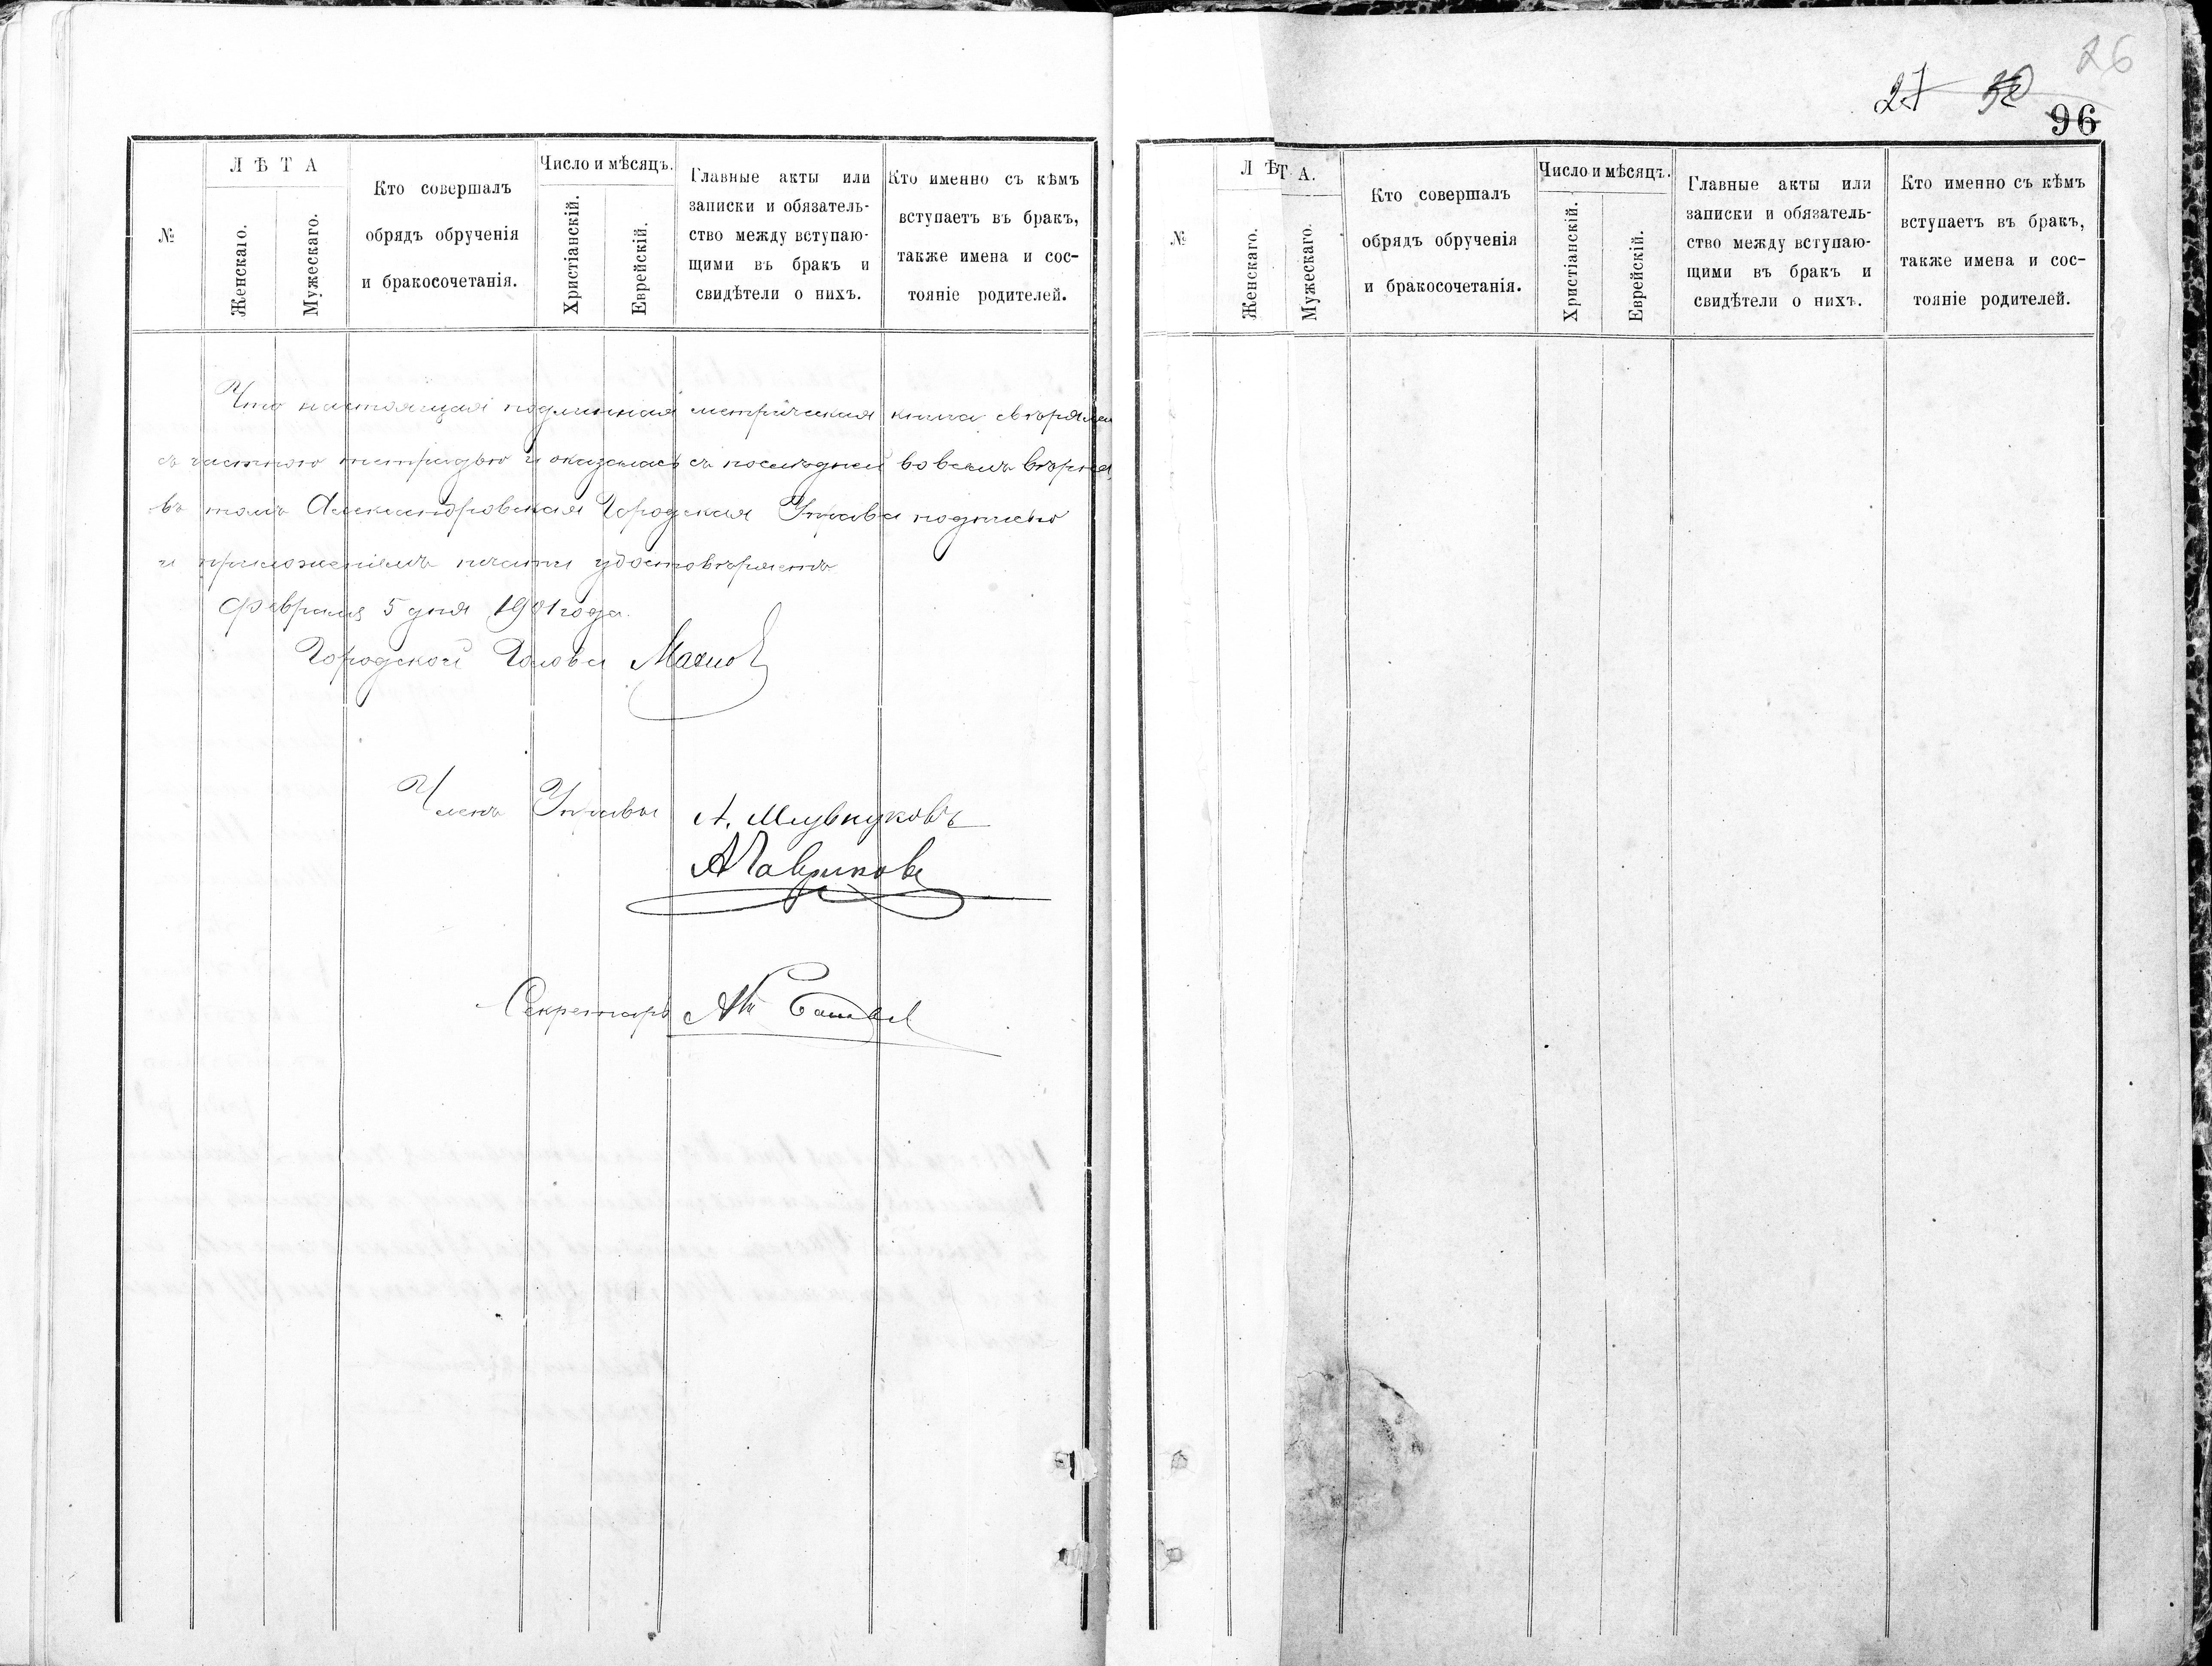 №
Л Ѣ Т А
Женскаго.
Мужескаго.
Кто совершалъ
обрядъ обрученія
и бракосочетанія.
Число и мѣсяцъ.
Христіанскій.
Еврейскій.
Главные акты или
записки и обязатель-
ство между вступаю-
щими въ бракъ и
свидѣтели о нихъ.
Кто именно съ кѣмъ
вступаетъ въ бракъ,
также имена и сос-
тояніе родителей.
Что настоящая подлинная метрическая книга свѣрялась
съ частною тетрадью и оказалась съ послѣдней во всемъ вѣрна,
въ томъ Александровская Городская Управа подписью
и приложеніемъ печати удостовѣряетъ
Февраля 5 дня 1901 года.
Городской Голова Махно
Членъ Управы А.
А Гавриковъ
Секретарь
27 26
96
№
Л Ѣ Т А.
Женскаго.
Мужескаго.
Кто совершалъ
обрядъ обрученія
и бракосочетанія.
Число и мѣсяцъ.
Христіанскій.
Еврейскій.
Главные акты или
записки и обязатель-
ство между вступаю-
щими въ бракъ и
свидѣтели о нихъ.
Кто именно съ кѣмъ
вступаетъ въ бракъ,
также имена и сос-
тояніе родителей.